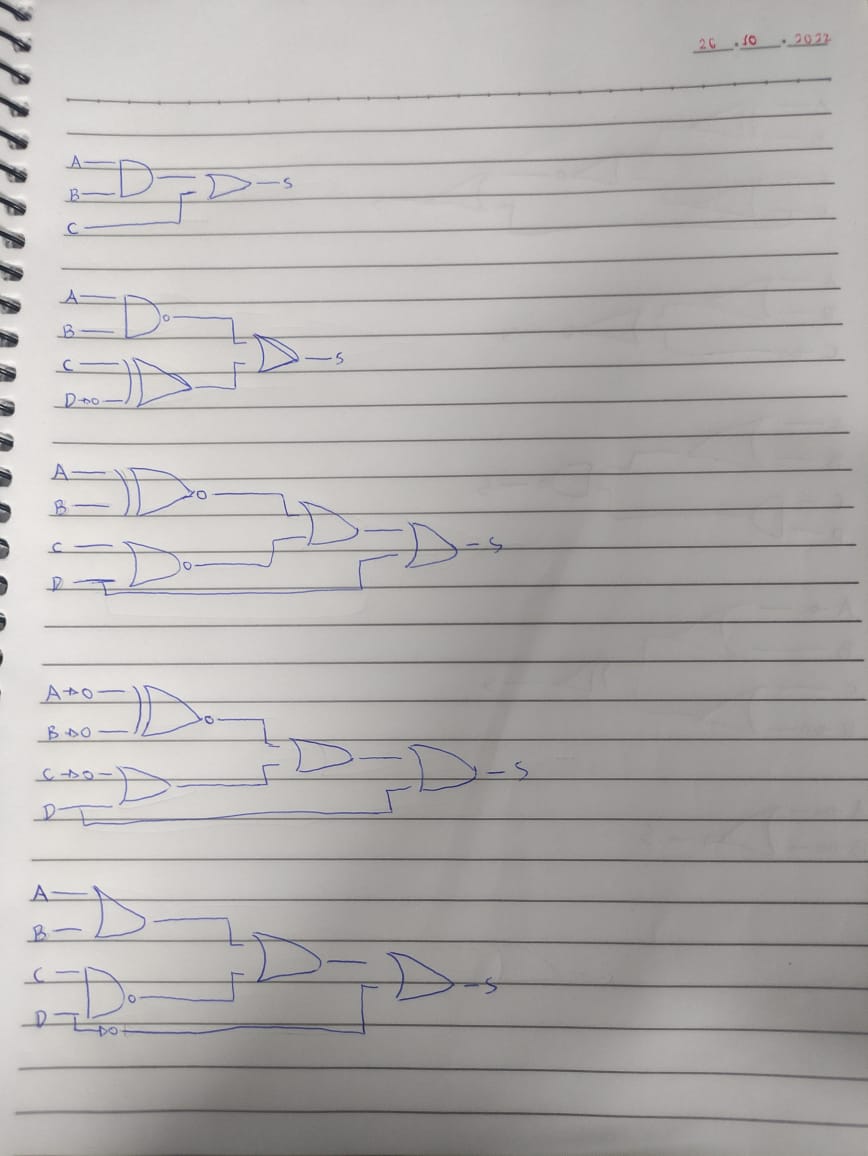 26 . 10 . 2022
A
B
C
S
A
B
C
D
S
A
B
C
D
S
A
B
C
D
S
A
B
C
D
S